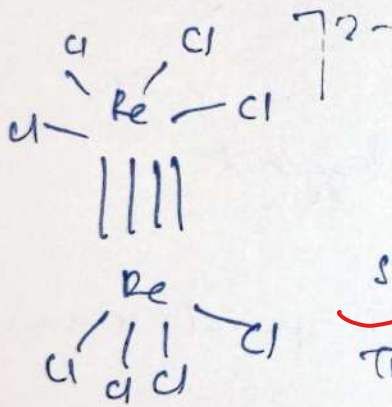 Cl Cl ]2-
Cl Re Cl
Re
Cl Cl Cl Cl
S
T